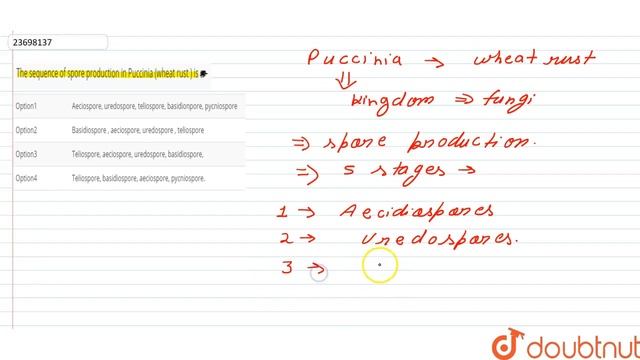 23698137
The sequence of spore production in Puccinia (wheat rust ) is
Option1 Aeciospore, uredospore, teliospore, basidionpore, pycniospore
Option2 Basidiospore , aeciospore, uredospore , teliospore
Option3 Teliospore, aeciospore, uredospore, basidiospore,
Option4 Teliospore, basidiospore, aeciospore, pycniospore.
Puccinia → wheat rust
⇓
kingdom ⇒ fungi
⇒ spore production.
⇒ 5 stages →
1 → Aecidiospores
2 → Uredospores.
3 →
doubtnut